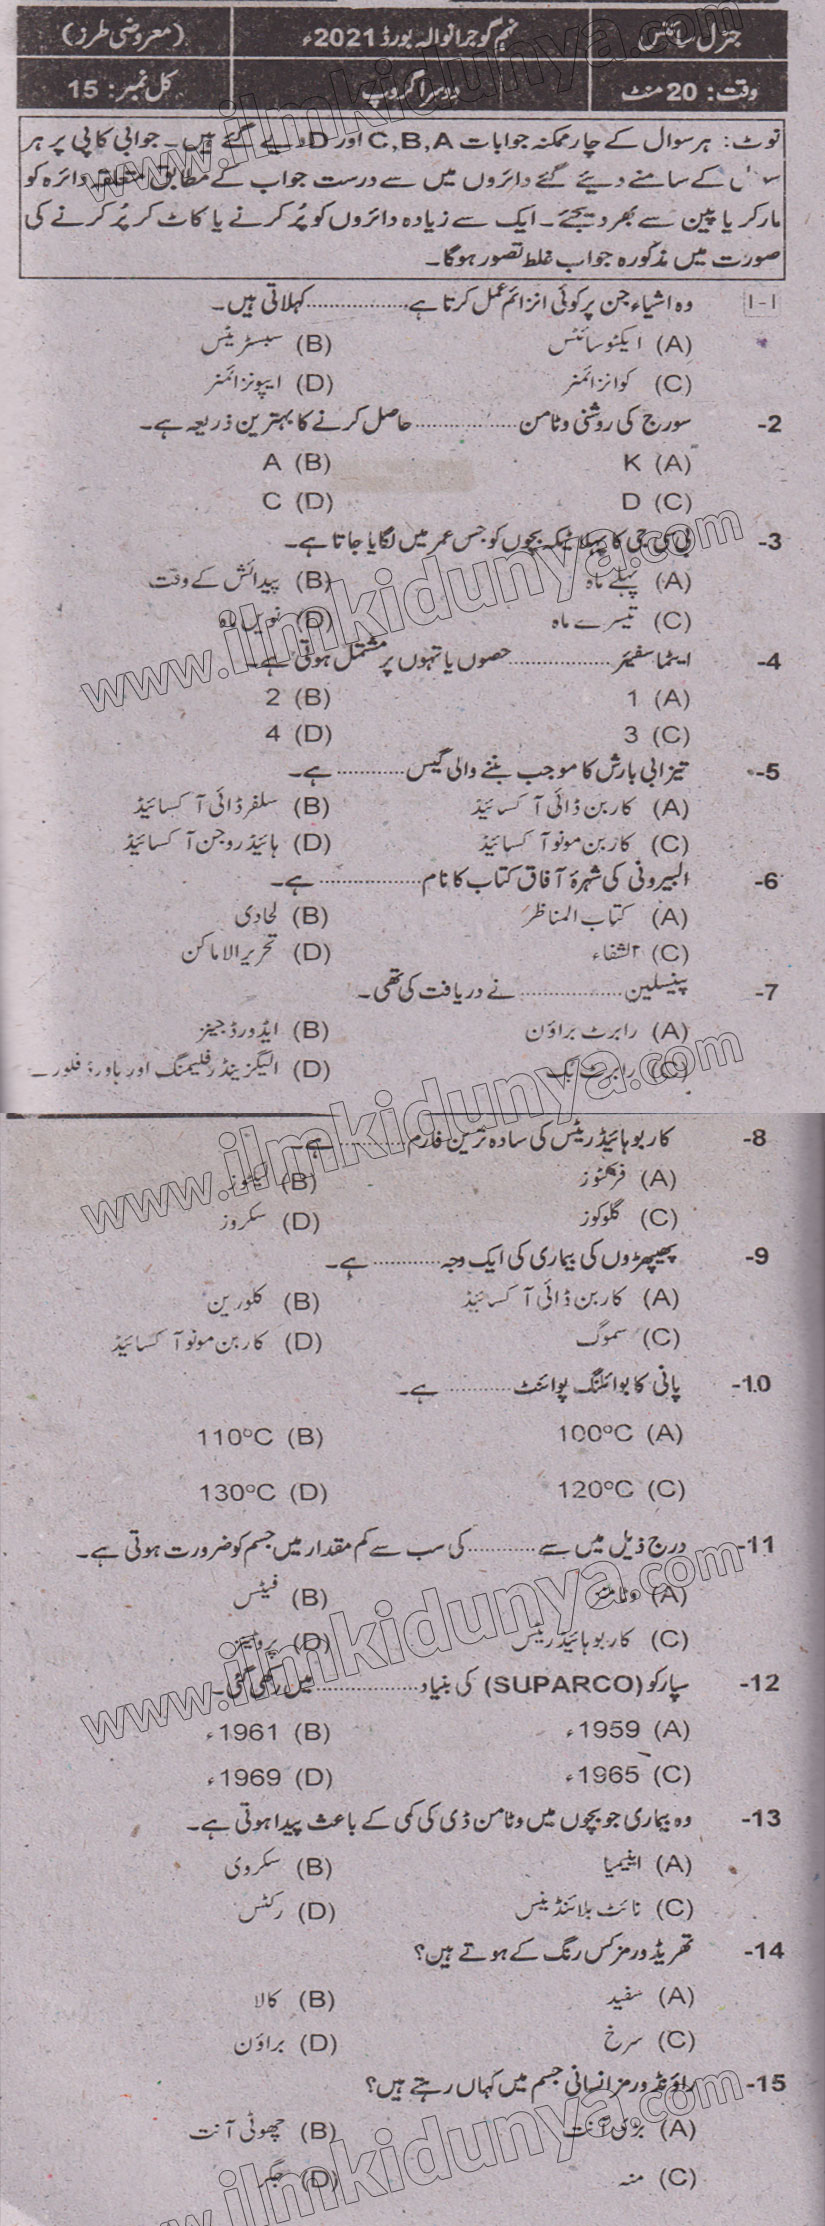 جنرل سائنس
نہم گوجرانوالہ بورڈ 2021ء
(معروضی طرز)
وقت: 20 منٹ
دوسرا گروپ
کل نمبر: 15
نوٹ: ہر سوال کے چار ممکنہ جوابات C,B,A اور D دیے گئے ہیں۔ جوابی کاپی پر ہر
کے سامنے دیئے گئے دائروں میں سے درست جواب کے مطابق متعلقہ دائرہ کو
مارکر یا پین سے بھر دیجئے۔ ایک سے زیادہ دائروں کو پُر کرنے یا کاٹ کر پُر کرنے کی
صورت میں مذکورہ جواب غلط تصور ہوگا۔
1-1 وہ اشیاء جن پر کوئی انزائم عمل کرتا ہے، .......... کہلاتی ہیں۔
(A) ایکٹو سائٹس (B) سبسٹریٹس
(C) کو انزائمنز (D) ایپونزائمنز
2- سورج کی روشنی وٹامن .......... حاصل کرنے کا بہترین ذریعہ ہے۔
(A) K (B) A
(C) D (D) C
3- بی سی جی کا پہلا ٹیکہ بچوں کو جس عمر میں لگایا جاتا ہے۔
(A) پہلے ماہ (B) پیدائش کے وقت
(C) تیسرے ماہ (D) نویں ماہ
4- ایٹماسفیئر .......... حصوں یا تہوں پر مشتمل ہوتی ہے۔
(A) 1 (B) 2
(C) 3 (D) 4
5- تیزابی بارش کا موجب بننے والی گیس .......... ہے۔
(A) کاربن ڈائی آکسائیڈ (B) سلفر ڈائی آکسائیڈ
(C) کاربن مونو آکسائیڈ (D) ہائیڈروجن آکسائیڈ
6- البیرونی کی شہرۂ آفاق کتاب کا نام .......... ہے۔
(A) کتاب المناظر (B) لحادی
(C) الشفاء (D) تحریر الاماکن
7- پینسلین .......... نے دریافت کی تھی۔
(A) رابرٹ براؤن (B) ایڈورڈ جینز
(C) رابرٹ ہک (D) الیگزینڈر فلیمنگ اور ہاورڈ فلورے
8- کاربوہائیڈریٹس کی سادہ ترین فارم .......... ہے۔
(A) فرکٹوز (B) لیکٹوز
(C) گلوکوز (D) سکروز
9- پھیپھڑوں کی بیماری کی ایک وجہ .......... ہے۔
(A) کاربن ڈائی آکسائیڈ (B) کلورین
(C) سموگ (D) کاربن مونو آکسائیڈ
10- پانی کا بوائلنگ پوائنٹ .......... ہے۔
(A) 100°C (B) 110°C
(C) 120°C (D) 130°C
11- درج ذیل میں سے .......... کی سب سے کم مقدار میں جسم کو ضرورت ہوتی ہے۔
(A) وٹامنز (B) فیٹس
(C) کاربوہائیڈریٹس (D) پروٹینز
12- سپارکو (SUPARCO) کی بنیاد .......... میں رکھی گئی۔
(A) 1959ء (B) 1961ء
(C) 1965ء (D) 1969ء
13- وہ بیماری جو بچوں میں وٹامن ڈی کی کمی کے باعث پیدا ہوتی ہے۔
(A) اینیمیا (B) سکروی
(C) نائٹ بلائنڈنیس (D) رکٹس
14- تھریڈورمز کس رنگ کے ہوتے ہیں؟
(A) سفید (B) کالا
(C) سرخ (D) براؤن
15- راؤنڈورمز انسانی جسم میں کہاں رہتے ہیں؟
(A) بڑی آنت (B) چھوٹی آنت
(C) منہ (D) جگر
www.ilmkidunya.com
www.ilmkidunya.com
www.ilmkidunya.com
www.ilmkidunya.com
www.ilmkidunya.com